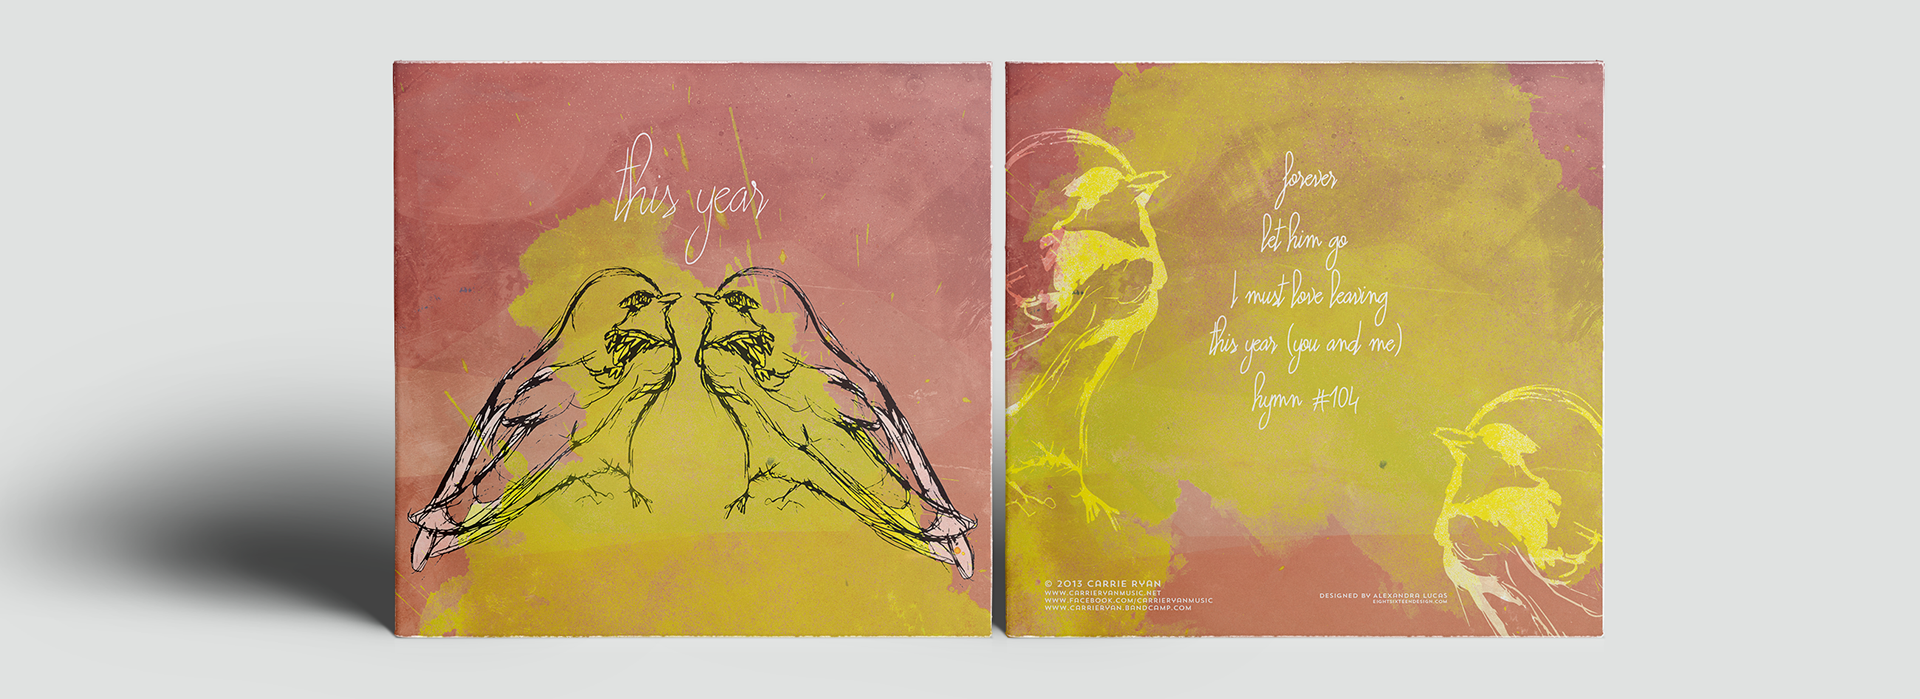 this year
forever
let him go
I must love leaving
this year (you and me)
hymn #104
© 2013 CARRIE RYAN
WWW.CARRIERYANMUSIC.NET
WWW.FACEBOOK.COM/CARRIERYANMUSIC
WWW.CARRIERYAN.BANDCAMP.COM
DESIGNED BY ALEXANDRA LUCAS
EIGHTSIXTEENDESIGN.COM